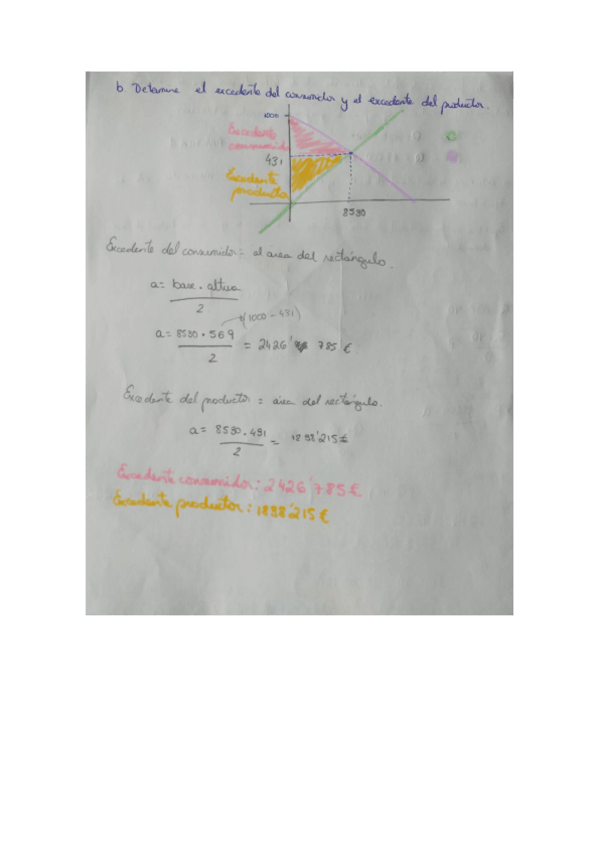 b Determine el excedente del consumidor y el excedente del productor.
1000
Excedente
consumid
431
Excedente
producto
8530
Excedente del consumidor = al area del rectángulo.
a = base · altura
2
(1000 - 431)
a = 8530 · 569
2
= 2426' 785 €
Excedente del productor = área del rectángulo.
a = 8530 . 431
2
= 1838'215 €
Excedente consumidor: 2426'785 €
Excedente productor: 1838'215 €